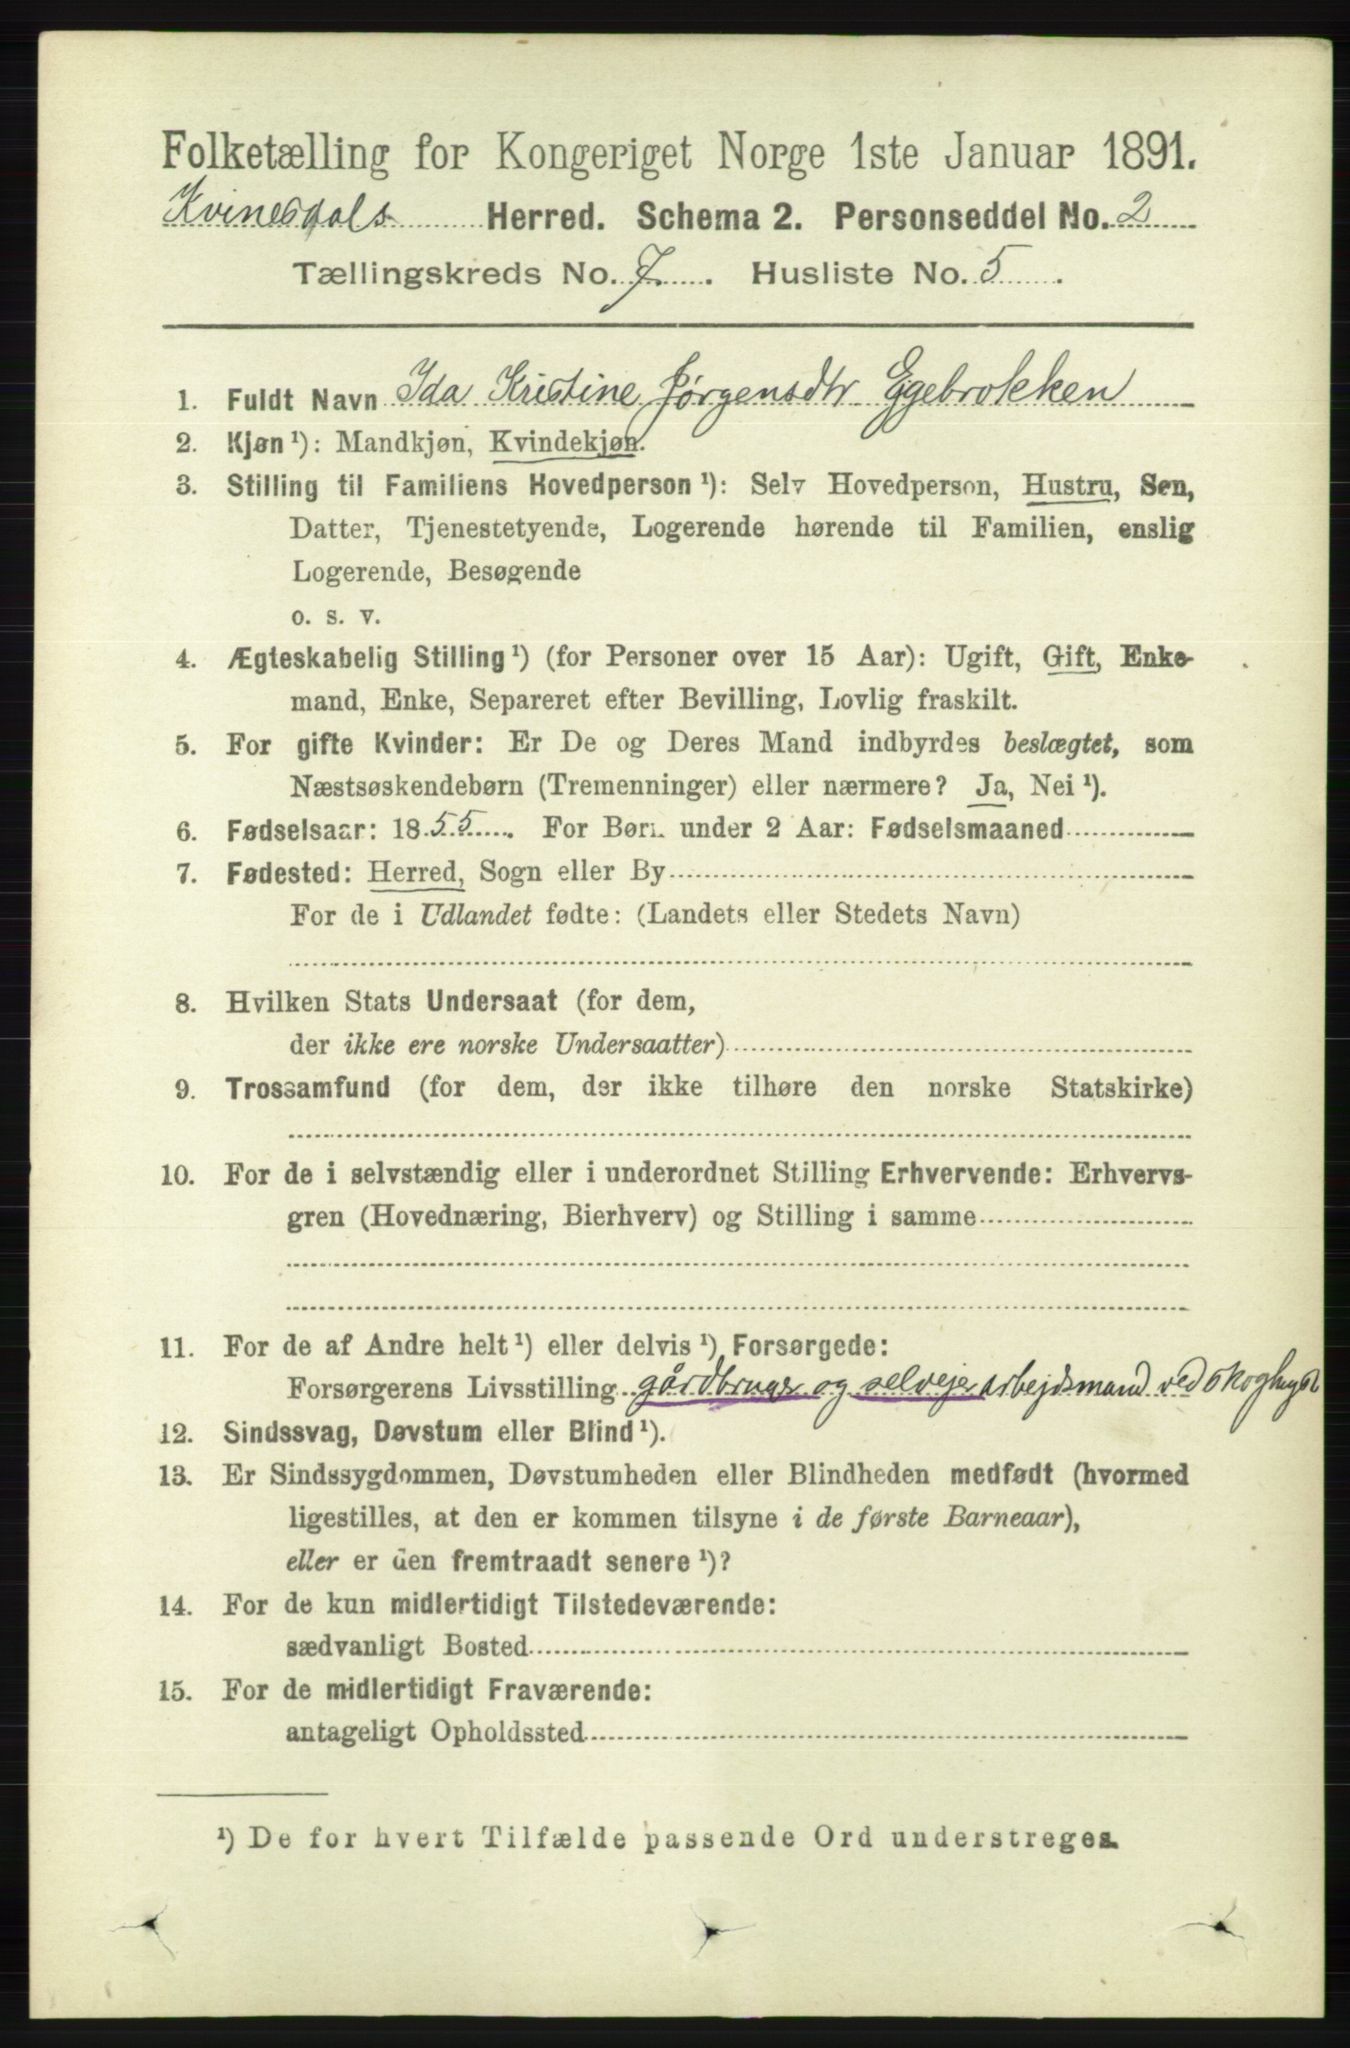 Folketælling for Kongeriget Norge 1ste Januar 1891.
Kvinesdals Herred. Schema 2. Personseddel No. 2
Tællingskreds No. 7. Husliste No. 5.
1. Fuldt Navn Ida Kristine Jørgensdtr Egebrokken
2. Kjøn ¹): Mandkjøn, Kvindekjøn.
3. Stilling til Familiens Hovedperson ¹): Selv Hovedperson, Hustru, Søn,
Datter, Tjenestetyende, Logerende hørende til Familien, enslig
Logerende, Besøgende
o. s. v.
4. Ægteskabelig Stilling ¹) (for Personer over 15 Aar): Ugift, Gift, Enke-
mand, Enke, Separeret efter Bevilling, Lovlig fraskilt.
5. For gifte Kvinder: Er De og Deres Mand indbyrdes beslægtet, som
Næstsøskendebørn (Tremenninger) eller nærmere? Ja, Nei ¹).
6. Fødselsaar: 1855. For Børn under 2 Aar: Fødselsmaaned
7. Fødested: Herred, Sogn eller By
For de i Udlandet fødte: (Landets eller Stedets Navn)
8. Hvilken Stats Undersaat (for dem,
der ikke ere norske Undersaatter)
9. Trossamfund (for dem, der ikke tilhøre den norske Statskirke)
10. For de i selvstændig eller i underordnet Stilling Erhvervende: Erhvervs-
gren (Hovednæring, Bierhverv) og Stilling i samme
11. For de af Andre helt ¹) eller delvis ¹) Forsørgede:
Forsørgerens Livsstilling gårdbruger og selvejer arbejdsmand ved skoghugst
12. Sindssvag, Døvstum eller Blind ¹).
13. Er Sindssygdommen, Døvstumheden eller Blindheden medfødt (hvormed
ligestilles, at den er kommen tilsyne i de første Barneaar),
eller er den fremtraadt senere ¹)?
14. For de kun midlertidigt Tilstedeværende:
sædvanligt Bosted
15. For de midlertidigt Fraværende:
antageligt Opholdssted
¹) De for hvert Tilfælde passende Ord understreges.